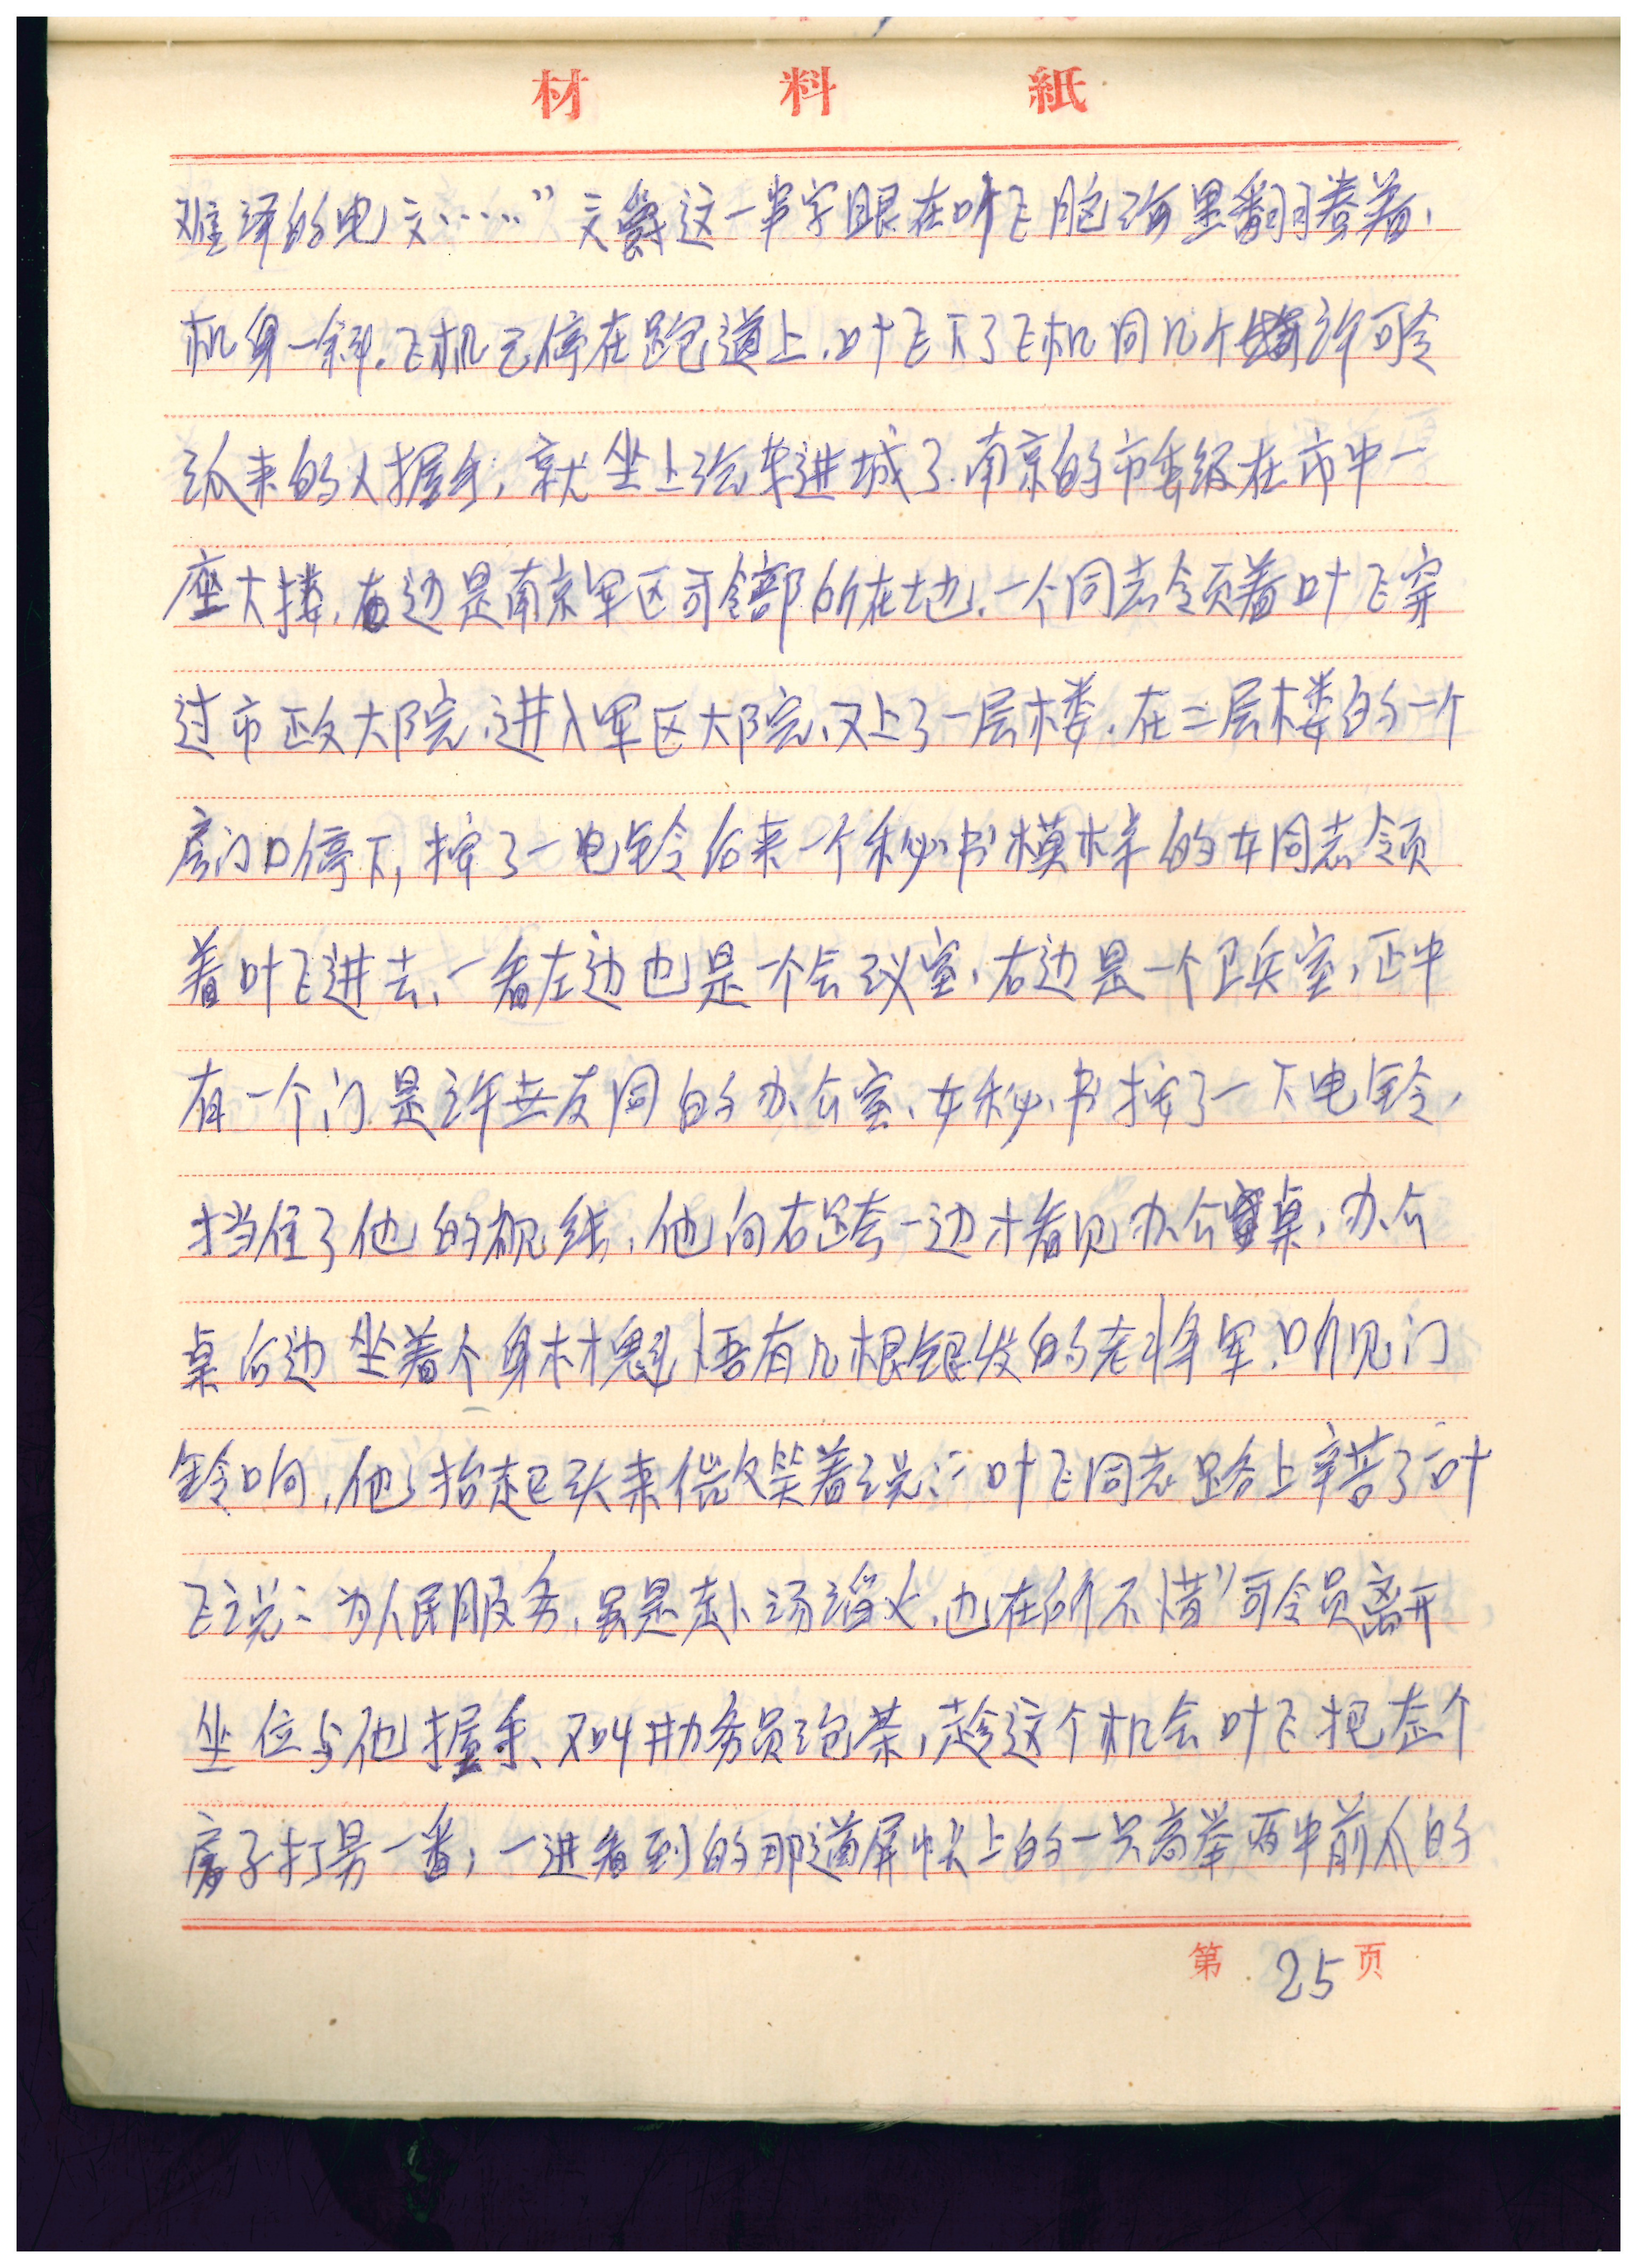 材料紙
难译的电文……”这一串字眼在叶飞脑海里翻卷着，
机身一斜，飞机已停在跑道上，叶飞下了飞机同几个许司令
派来的人握手，就坐上汽车进城了，南京的市委级在市中一
座大楼，右边是南京军区司令部所在地，一个同志领着叶飞穿
过市政大院，进入军区大院，又上了一层楼，在二层楼的一个
房门口停下，按了一电铃后来一个秘书模样的女同志领
着叶飞进去，一看左边也是一个会议室，右边是一个卫兵室，正中
有一个门是许世友同的办公室，女秘书按了一下电铃，
挡住了他的视线，他向右跨一边才看见办公桌，办公
桌后边坐着个身材魁梧有几根银发的老将军，听见门
铃响，他抬起头来微笑着说：“叶飞同志路上辛苦了”叶
飞说：为人民服务，虽是赴汤滔火，也在所不惜”司令员离开
坐位与他握手，又叫勤务员泡茶，趁这个机会叶飞把在个
房子打量一番，一进看到的那道屏帐上的一只高举两中前爪的
第 25 页